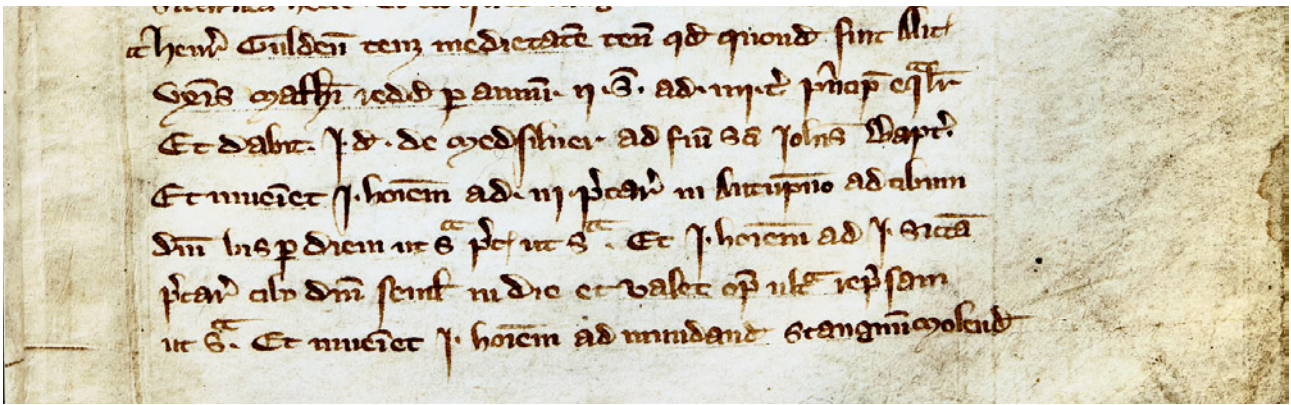 henr̄ Gulden̄ ten; medietatē ten̄ qd quond fuit Alic
Ux̄is Math̄i redd p annū. ij. S̄. ad. iiij. t̉ p̉ncip̄ eqᵃlr̄
Et dabit. I. d̉. de Medsiluer ad fm̄ Sc̄i Joh̄is Bapt̉.
Et inuēiet I. hoīem ad. iij. p̉car̉ in Autūpno ad cibum
dn̄i bis p diem ut Sᵃ p̉c ut Sᵃ. Et I. hoīem ad I. Siccā
p̉car̉ cib; dn̄i semł in die et valet op̄ ultᵃ rep̉sam
ut Sᵃ. Et inuēiet I. hoīem ad mundand Stangnū Molend